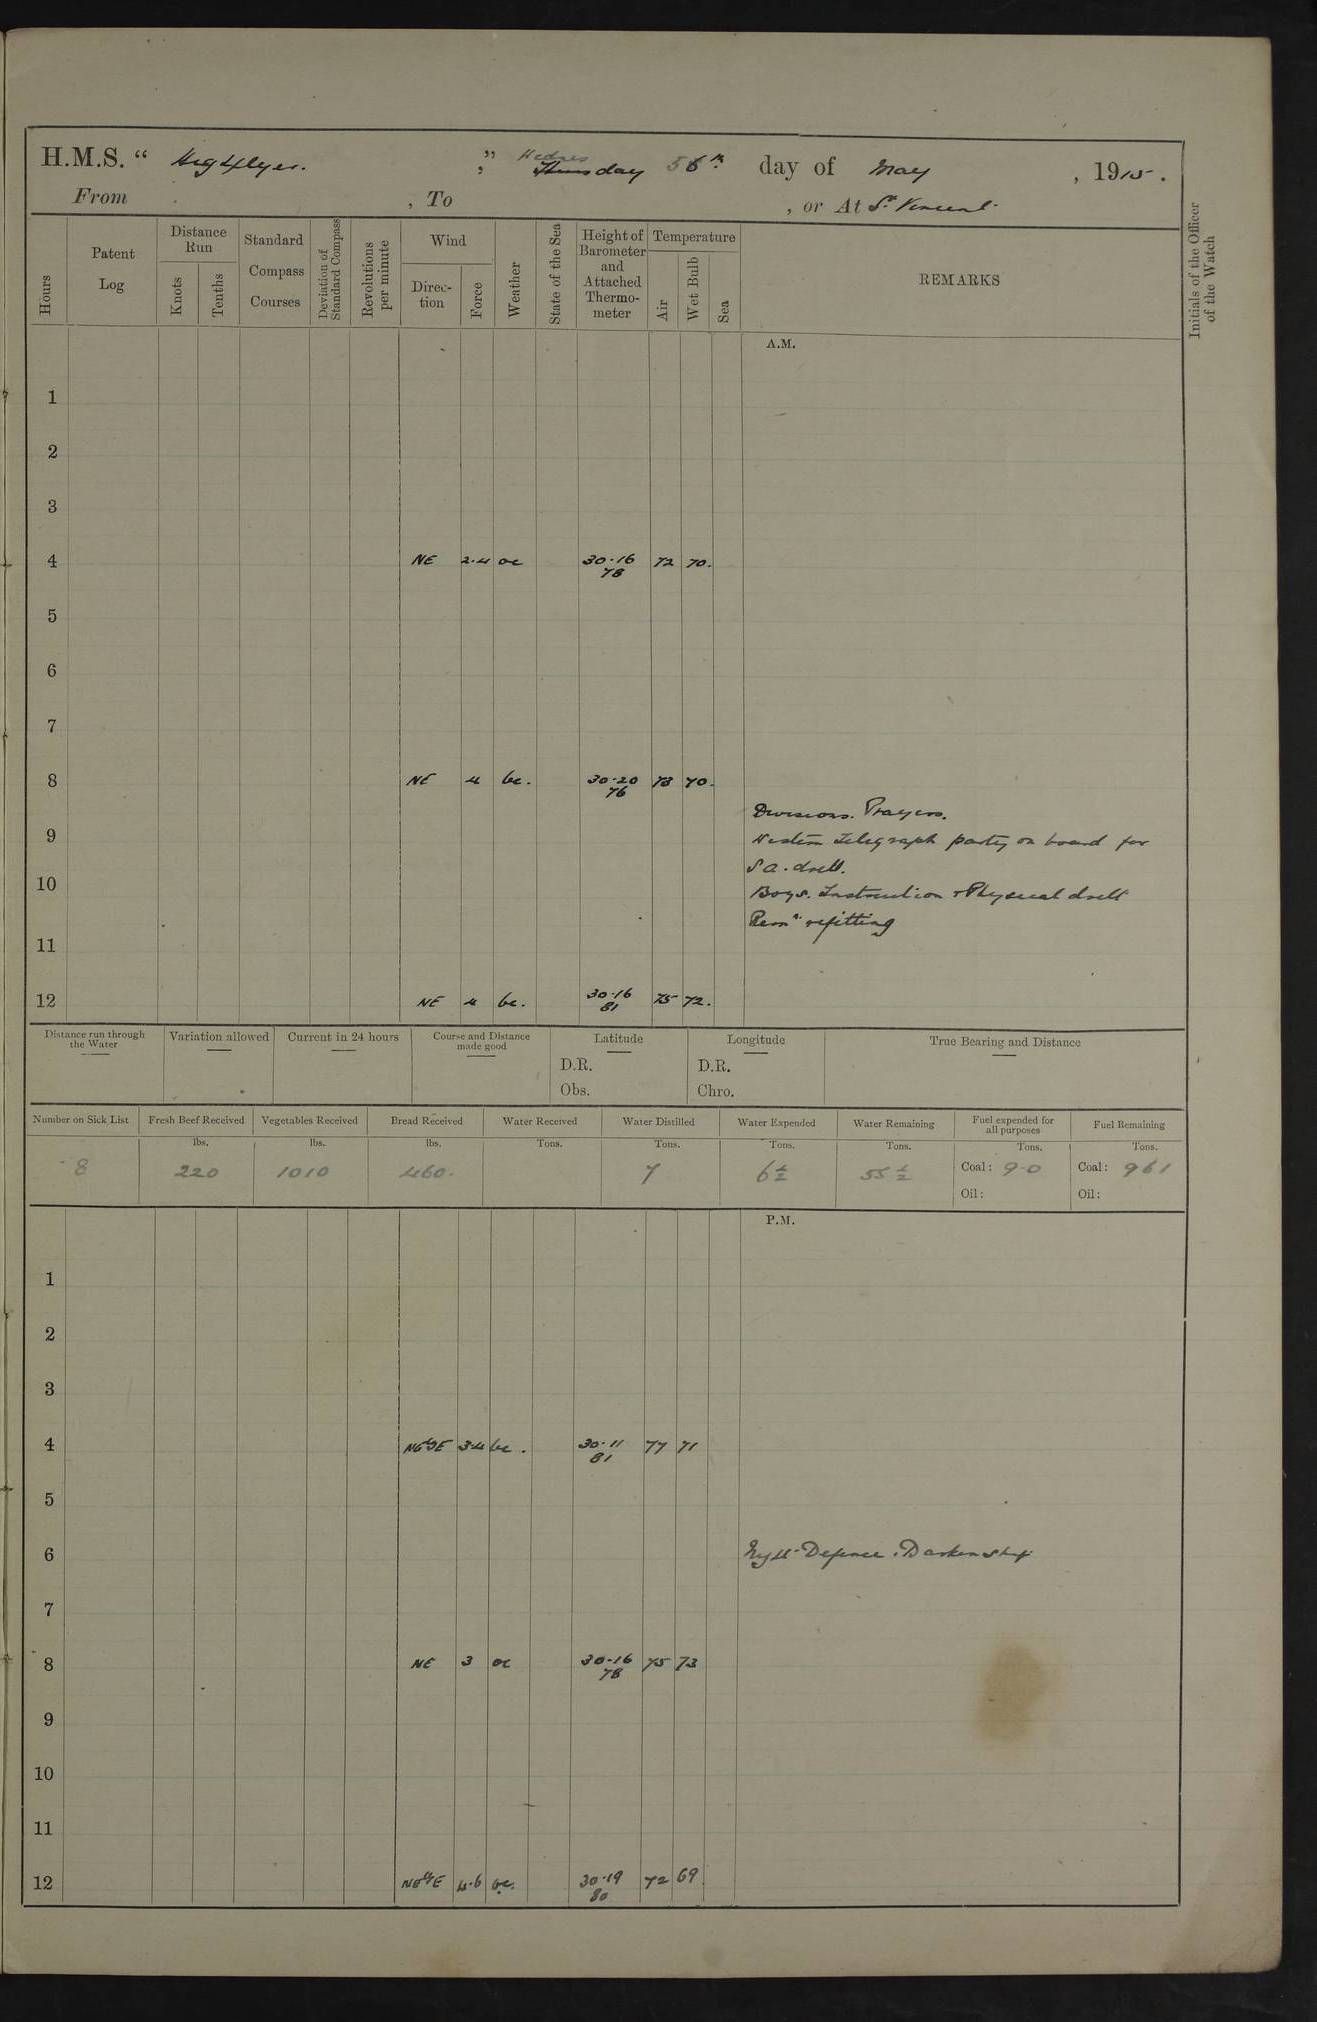 H.M.S. “ Highflyer. ” Wednesday 5th day of May, 1915.
From , To , or At St Vincent.
Hours
Patent Log
Distance Run
Knots
Tenths
Standard Compass Courses
Deviation of Standard Compass
Revolutions per minute
Wind
Direction
Force
Weather
State of the Sea
Height of Barometer and Attached Thermometer
Temperature
Air
Wet Bulb
Sea
REMARKS
Initials of the Officer of the Watch
A.M.
1
2
3
4 NE 2.4 oc 30.16 72 70.
78
5
6
7
8 NE 4 bc. 30.20 73 70.
76
Divisions. Prayers.
9 Western Telegraph party on board for
S.A. drill.
10 Boys. Instruction & Physical drill
Remr refitting
11
12 NE 4 bc. 30.16 75 72.
81
Distance run through the Water
Variation allowed
Current in 24 hours
Course and Distance made good
Latitude
D.R.
Obs.
Longitude
D.R.
Chro.
True Bearing and Distance
Number on Sick List
8
Fresh Beef Received
lbs.
220
Vegetables Received
lbs.
1010
Bread Received
lbs.
460.
Water Received
Tons.
Water Distilled
Tons.
7
Water Expended
Tons.
6½
Water Remaining
Tons.
55½
Fuel expended for all purposes
Tons.
Coal: 90
Oil:
Fuel Remaining
Tons.
Coal: 961
Oil:
P.M.
1
2
3
4 NEbyE 3.4 bc. 30.11 77 71
81
5
6 Night Defence. Darken ship
7
8 NE 3 oc 30.16 75 73
78
9
10
11
12 NEbyE 4.6 bc. 30.19 72 69
80